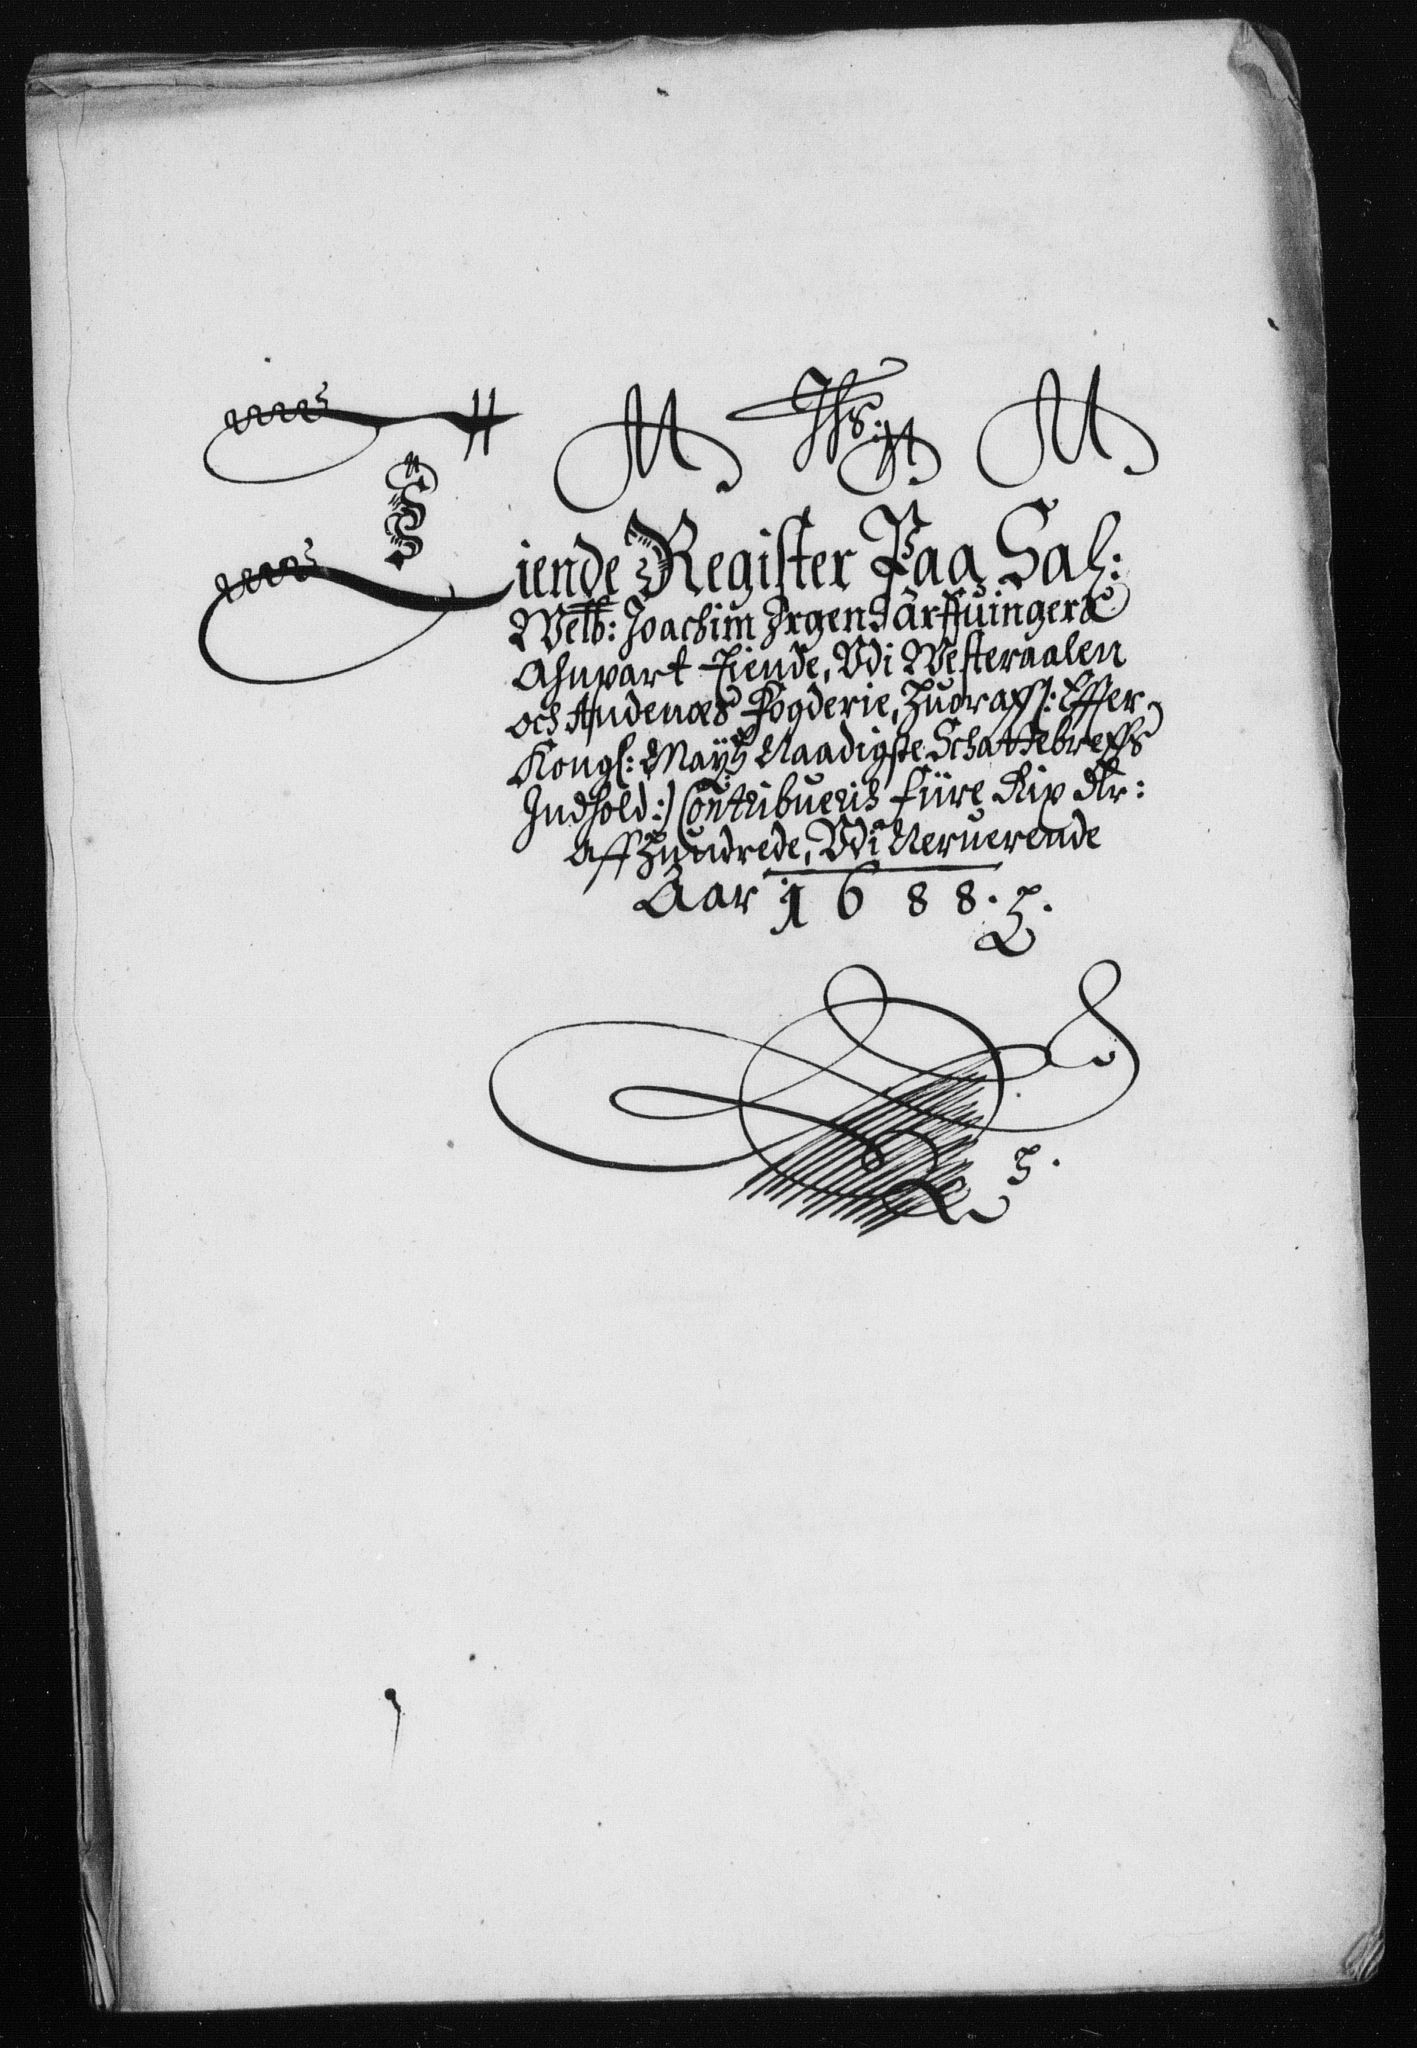 Tiende Register Paa Sal:
Welb: Joachim Irgens Arffuingers
Anpart Tiende, Udi Westeraalen
och Andenæs Fogderie, huoraff (: Effter
Kongl: Mayts Naadigste Schattebreffs
Indhold :) Contribueris fiire Rix dlr:
aff Hundrede, Udi Neruerende
Aar 1688.